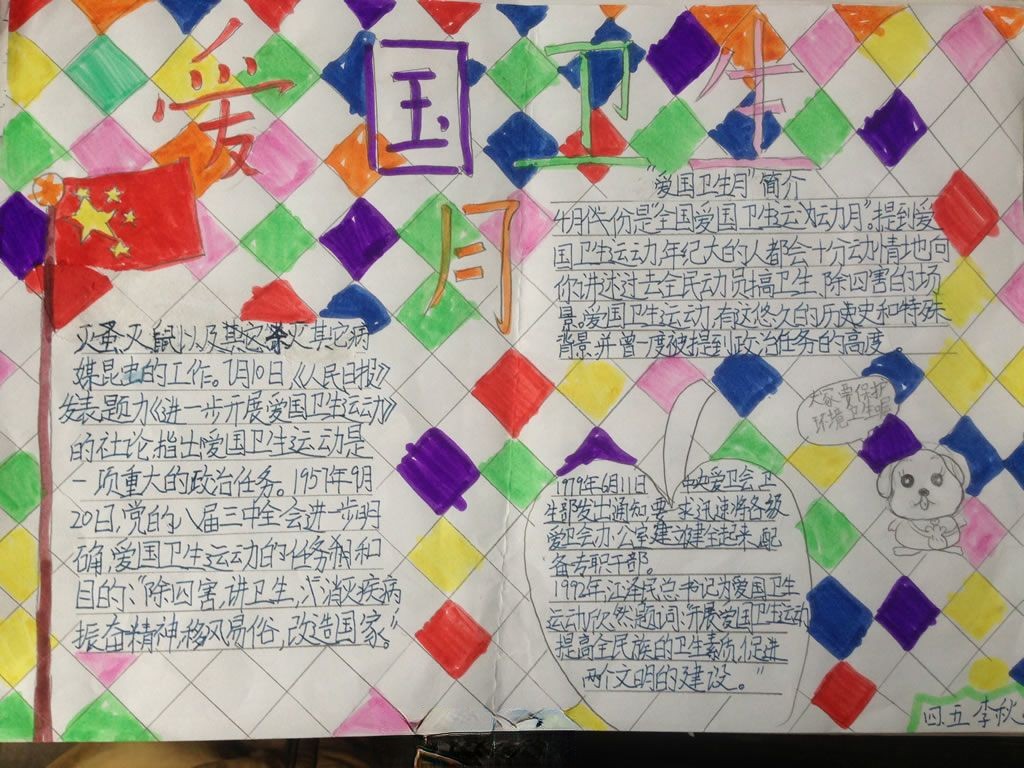 爱国卫生
月
"爱国卫生月"简介
4月份是"全国爱国卫生运动月"。提到爱
国卫生运动,年纪大的人都会十分动情地向
你讲述过去全民动员搞卫生、除四害的场
景。爱国卫生运动,有这悠久的历史和特殊
背景,并曾一度被提到政治任务的高度。
灭蚤灭鼠以及其它灭其它病
媒昆虫的工作。7月10日,《人民日报》
发表题为《进一步开展爱国卫生运动》
的社论,指出爱国卫生运动是
一项重大的政治任务。1957年9月
20日,党的八届三中全会进一步明
确,爱国卫生运动的任务和
目的:"除四害,讲卫生,消灭疾病
振奋精神,移风易俗,改造国家。"
大家要保护
环境卫生呢
1979年6月11日 中央爱卫会、卫
生部发出通知要求迅速将各级
爱卫会办公室建立健全起来,配
备专职干部。
1992年江泽民总书记为爱国卫生
运动欣然题词:开展爱国卫生运动
提高全民族的卫生素质,促进
两个文明的建设。"
四.五 李秋